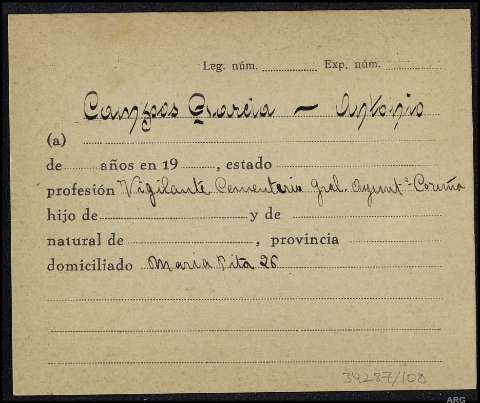 Leg. núm. Exp. núm.
Campos Garcia - Antonio
(a)
de años en 19 , estado
profesión Vigilante Cementerio Gral. Ayuntº Coruña
hijo de y de
natural de , provincia
domiciliado Maria Pita 26
34287/100
ARG